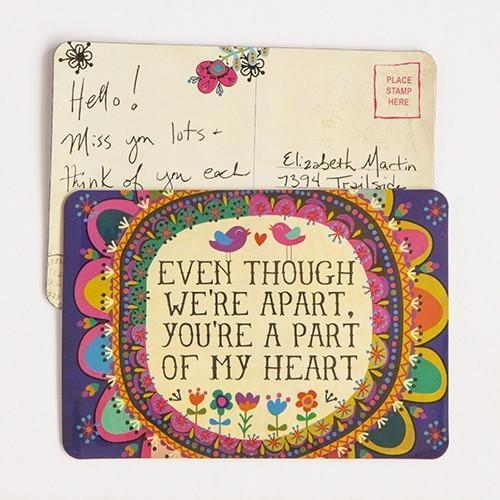 Hello!
Miss you lots +
think of you each
PLACE
STAMP
HERE
Elizabeth Martin
7394 Trailside
EVEN THOUGH
WE'RE APART,
YOU'RE A PART
OF MY HEART